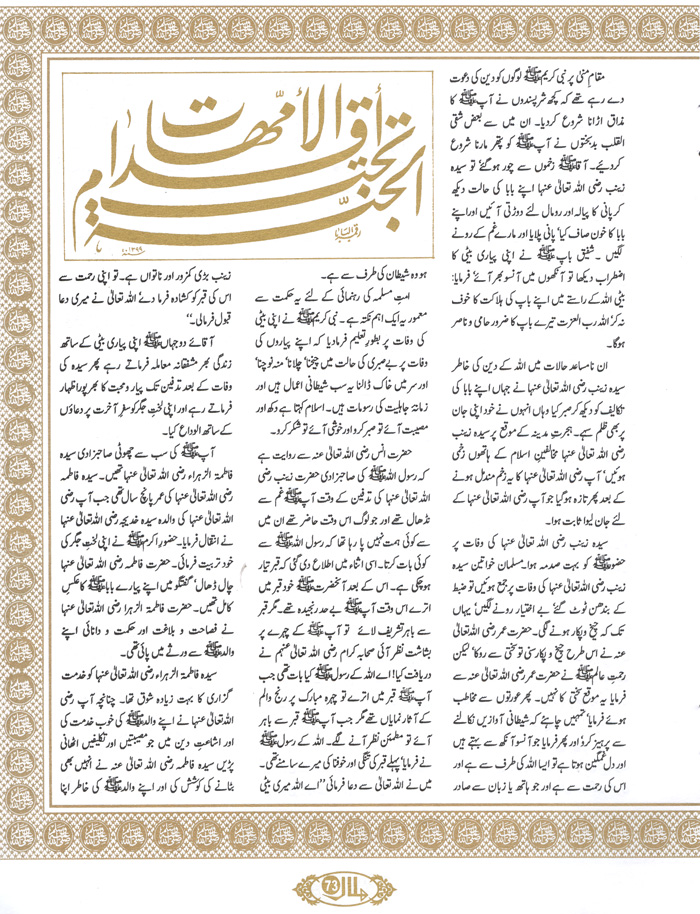 مقام منیٰ پر نبی کریمﷺ لوگوں کو دین کی دعوت
دے رہے تھے کہ کچھ شرپسندوں نے آپﷺ کا
مذاق اڑانا شروع کردیا۔ ان میں سے بعض شقی
القلب بدبختوں نے آپﷺ کو پتھر مارنا شروع
کردیئے۔ آقاﷺ زخموں سے چور ہوگئے تو سیدہ
زینب رضی اللہ تعالیٰ عنہا اپنے بابا کی حالت دیکھ
کر پانی کا پیالہ اور رومال لئے دوڑتی آئیں اور اپنے
بابا کا خون صاف کیا‘ پانی پلایا اور مارے غم کے رونے
لگیں۔ شفیق باپﷺ نے اپنی پیاری بیٹی کا
اضطراب دیکھا تو آنکھوں میں آنسو بھر آئے‘ فرمایا:
بیٹی اللہ کے راستے میں اپنے باپ کی ہلاکت کا خوف
نہ کر‘ اللہ رب العزت تیرے باپ کا ضرور حامی و ناصر
ہوگا۔
ان نامساعد حالات میں اللہ کے دین کی خاطر
سیدہ زینب رضی اللہ تعالیٰ عنہا نے جہاں اپنے بابا کی
تکالیف کو دیکھ کر صبر کیا وہاں انہوں نے خود اپنی جان
پر بھی ظلم سہے۔ ہجرتِ مدینہ کے موقع پر سیدہ زینب
رضی اللہ تعالیٰ عنہا مخالفین اسلام کے ہاتھوں زخمی
ہوئیں‘ آپ رضی اللہ تعالیٰ عنہا کا یہ زخم مندمل ہونے
کے بعد پھر تازہ ہوگیا جو آپ رضی اللہ تعالیٰ عنہا کے
لئے جان لیوا ثابت ہوا۔
سیدہ زینب رضی اللہ تعالیٰ عنہا کی وفات پر
حضورﷺ کو بہت صدمہ ہوا۔ مسلمان خواتین سیدہ
زینب رضی اللہ تعالیٰ عنہا کی وفات پر جمع ہوئیں تو ضبط
کے بندھن ٹوٹ گئے بے اختیار رونے لگیں‘ یہاں
تک کہ چیخ و پکار ہونے لگی۔ حضرت عمر رضی اللہ تعالیٰ
عنہ نے اس طرح چیخ و پکار سنی تو سختی سے روکا‘ لیکن
رحمتِ عالمﷺ نے حضرت عمر رضی اللہ تعالیٰ عنہ سے
فرمایا یہ موقع سختی کا نہیں۔ پھر عورتوں سے مخاطب
ہوئے فرمایا‘ تمہیں چاہئے کہ شیطانی آوازیں نکالنے
سے پرہیز کرو‘ اور پھر فرمایا جو آنسو آنکھ سے بہتے ہیں
اور دل غمگین ہوتا ہے تو ایسا اللہ کی طرف سے ہے اور
اس کی رحمت سے ہے اور جو ہاتھ یا زبان سے صادر
الجنة تحت أقدام الأمهات
۱۳۹۹
ہو وہ شیطان کی طرف سے ہے۔
امتِ مسلمہ کی رہنمائی کے لئے یہ حکمت سے
معمور یہ ایک اہم نکتہ ہے۔ نبی کریمﷺ نے اپنی بیٹی
کی وفات پر بطورِ تعلیم فرمادیا کہ اپنے پیاروں کی
وفات پر بے صبری کی حالت میں چیخنا‘ چلانا‘ منہ نوچنا‘
اور سر میں خاک ڈالنا یہ سب شیطانی اعمال ہیں اور
زمانۂ جاہلیت کی رسومات ہیں۔ اسلام کہتا ہے دکھ اور
مصیبت آئے تو صبر کرو اور خوشی آئے تو شکر کرو۔
حضرت انس رضی اللہ تعالیٰ عنہ سے روایت ہے
کہ رسول اللہﷺ کی صاحبزادی حضرت زینب رضی
اللہ تعالیٰ عنہا کی تدفین کے وقت آپﷺ غم سے
نڈھال تھے اور جو لوگ اس وقت حاضر تھے ان میں
سے کوئی ہمت نہیں پا رہا تھا کہ رسول اللہﷺ سے
کوئی بات کرتا۔ اسی اثناء میں اطلاع دی گئی کہ قبر تیار
ہوچکی ہے۔ اس کے بعد آنحضرتﷺ خود قبر میں
اترے اس وقت آپﷺ بے حد رنجیدہ تھے۔ مگر قبر
سے باہر تشریف لائے تو آپﷺ کے چہرے پر
بشاشت نظر آئی صحابہ کرام رضی اللہ تعالیٰ عنہم نے
دریافت کیا! اے اللہ کے رسولﷺ کیا بات تھی جب
آپﷺ قبر میں اترے تو چہرہ مبارک پر رنج والم
کے آثار نمایاں تھے مگر جب آپﷺ قبر سے باہر
آئے تو مطمئن نظر آنے لگے۔ اللہ کے رسولﷺ
نے فرمایا‘ پہلے قبر کی تنگی اور خوفنا کی میرے سامنے تھی۔
میں نے اللہ تعالیٰ سے دعا فرمائی ’’اے اللہ میری بیٹی
زینب بڑی کمزور اور ناتواں ہے۔ تو اپنی رحمت سے
اس کی قبر کو کشادہ فرما دے‘ اللہ تعالیٰ نے میری دعا
قبول فرمالی۔‘‘
آقائے دو جہاںﷺ اپنی پیاری بیٹی کے ساتھ
زندگی بھر مشفقانہ معاملہ فرماتے رہے پھر سیدہ کی
وفات کے بعد تدفین تک پیار و محبت کا بھرپور اظہار
فرماتے رہے اور اپنی لختِ جگر کو سفرِ آخرت پر دعاؤں
کے ساتھ الوداع کیا۔
آپﷺ کی سب سے چھوٹی صاحبزادی سیدہ
فاطمۃ الزہراء رضی اللہ تعالیٰ عنہا تھیں۔ سیدہ فاطمہ
رضی اللہ تعالیٰ عنہا کی عمر پانچ سال تھی جب آپ رضی
اللہ تعالیٰ عنہا کی والدہ سیدہ خدیجہ رضی اللہ تعالیٰ عنہا
نے انتقال فرمایا۔ حضور اکرمﷺ نے اپنی لختِ جگر کی
خود تربیت فرمائی۔ حضرت فاطمہ رضی اللہ تعالیٰ عنہا
چال ڈھال‘ گفتگو میں اپنے پیارے باباﷺ کا عکسِ
کامل تھیں۔ حضرت فاطمۃ الزہرا رضی اللہ تعالیٰ عنہا
نے فصاحت و بلاغت اور حکمت و دانائی اپنے
والدﷺ سے ورثے میں پائی تھی۔
سیدہ فاطمۃ الزہراء رضی اللہ تعالیٰ عنہا کو خدمت
گزاری کا بہت زیادہ شوق تھا۔ چنانچہ آپ رضی
اللہ تعالیٰ عنہا نے اپنے والدﷺ کی خوب خدمت کی
اور اشاعتِ دین میں جو مصیبتیں اور تکلیفیں اٹھانی
پڑیں سیدہ فاطمہ رضی اللہ تعالیٰ عنہ نے انہیں بھی
بٹانے کی کوشش کی اور اپنے والدﷺ کی خاطر اپنا
ہلال
73